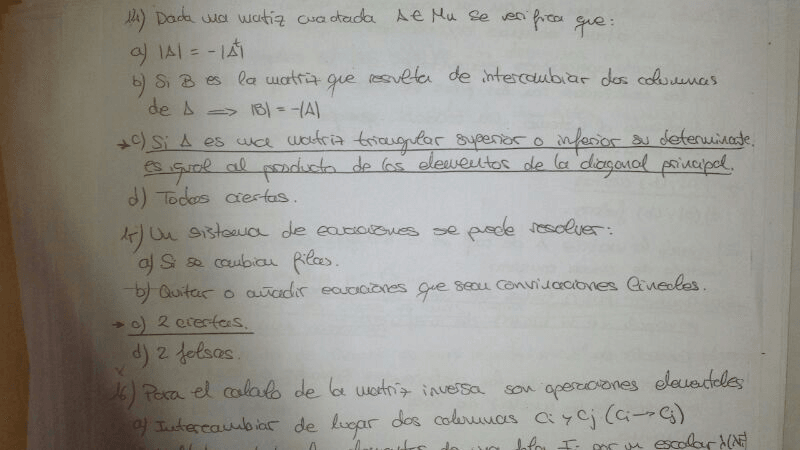 14) Dada una matriz cuadrada A ∈ Mn se verifica que:
a) |A| = -|Aᵗ|
b) Si B es la matriz que resulta de intercambiar dos columnas
de A ⟹ |B| = -|A|
→ c) Si A es una matriz triangular superior o inferior su determinante
es igual al producto de los elementos de la diagonal principal.
d) Todas ciertas.
15) Un sistema de ecuaciones se puede resolver:
a) Si se cambian filas.
b) Quitar o añadir ecuaciones que sean convinaciones lineales.
→ c) 2 ciertas.
d) 2 falsas.
16) Para el calculo de la matriz inversa son operaciones elementales
a) Intercambiar de lugar dos columnas Ci y Cj (Ci → Cj)
por un escalar